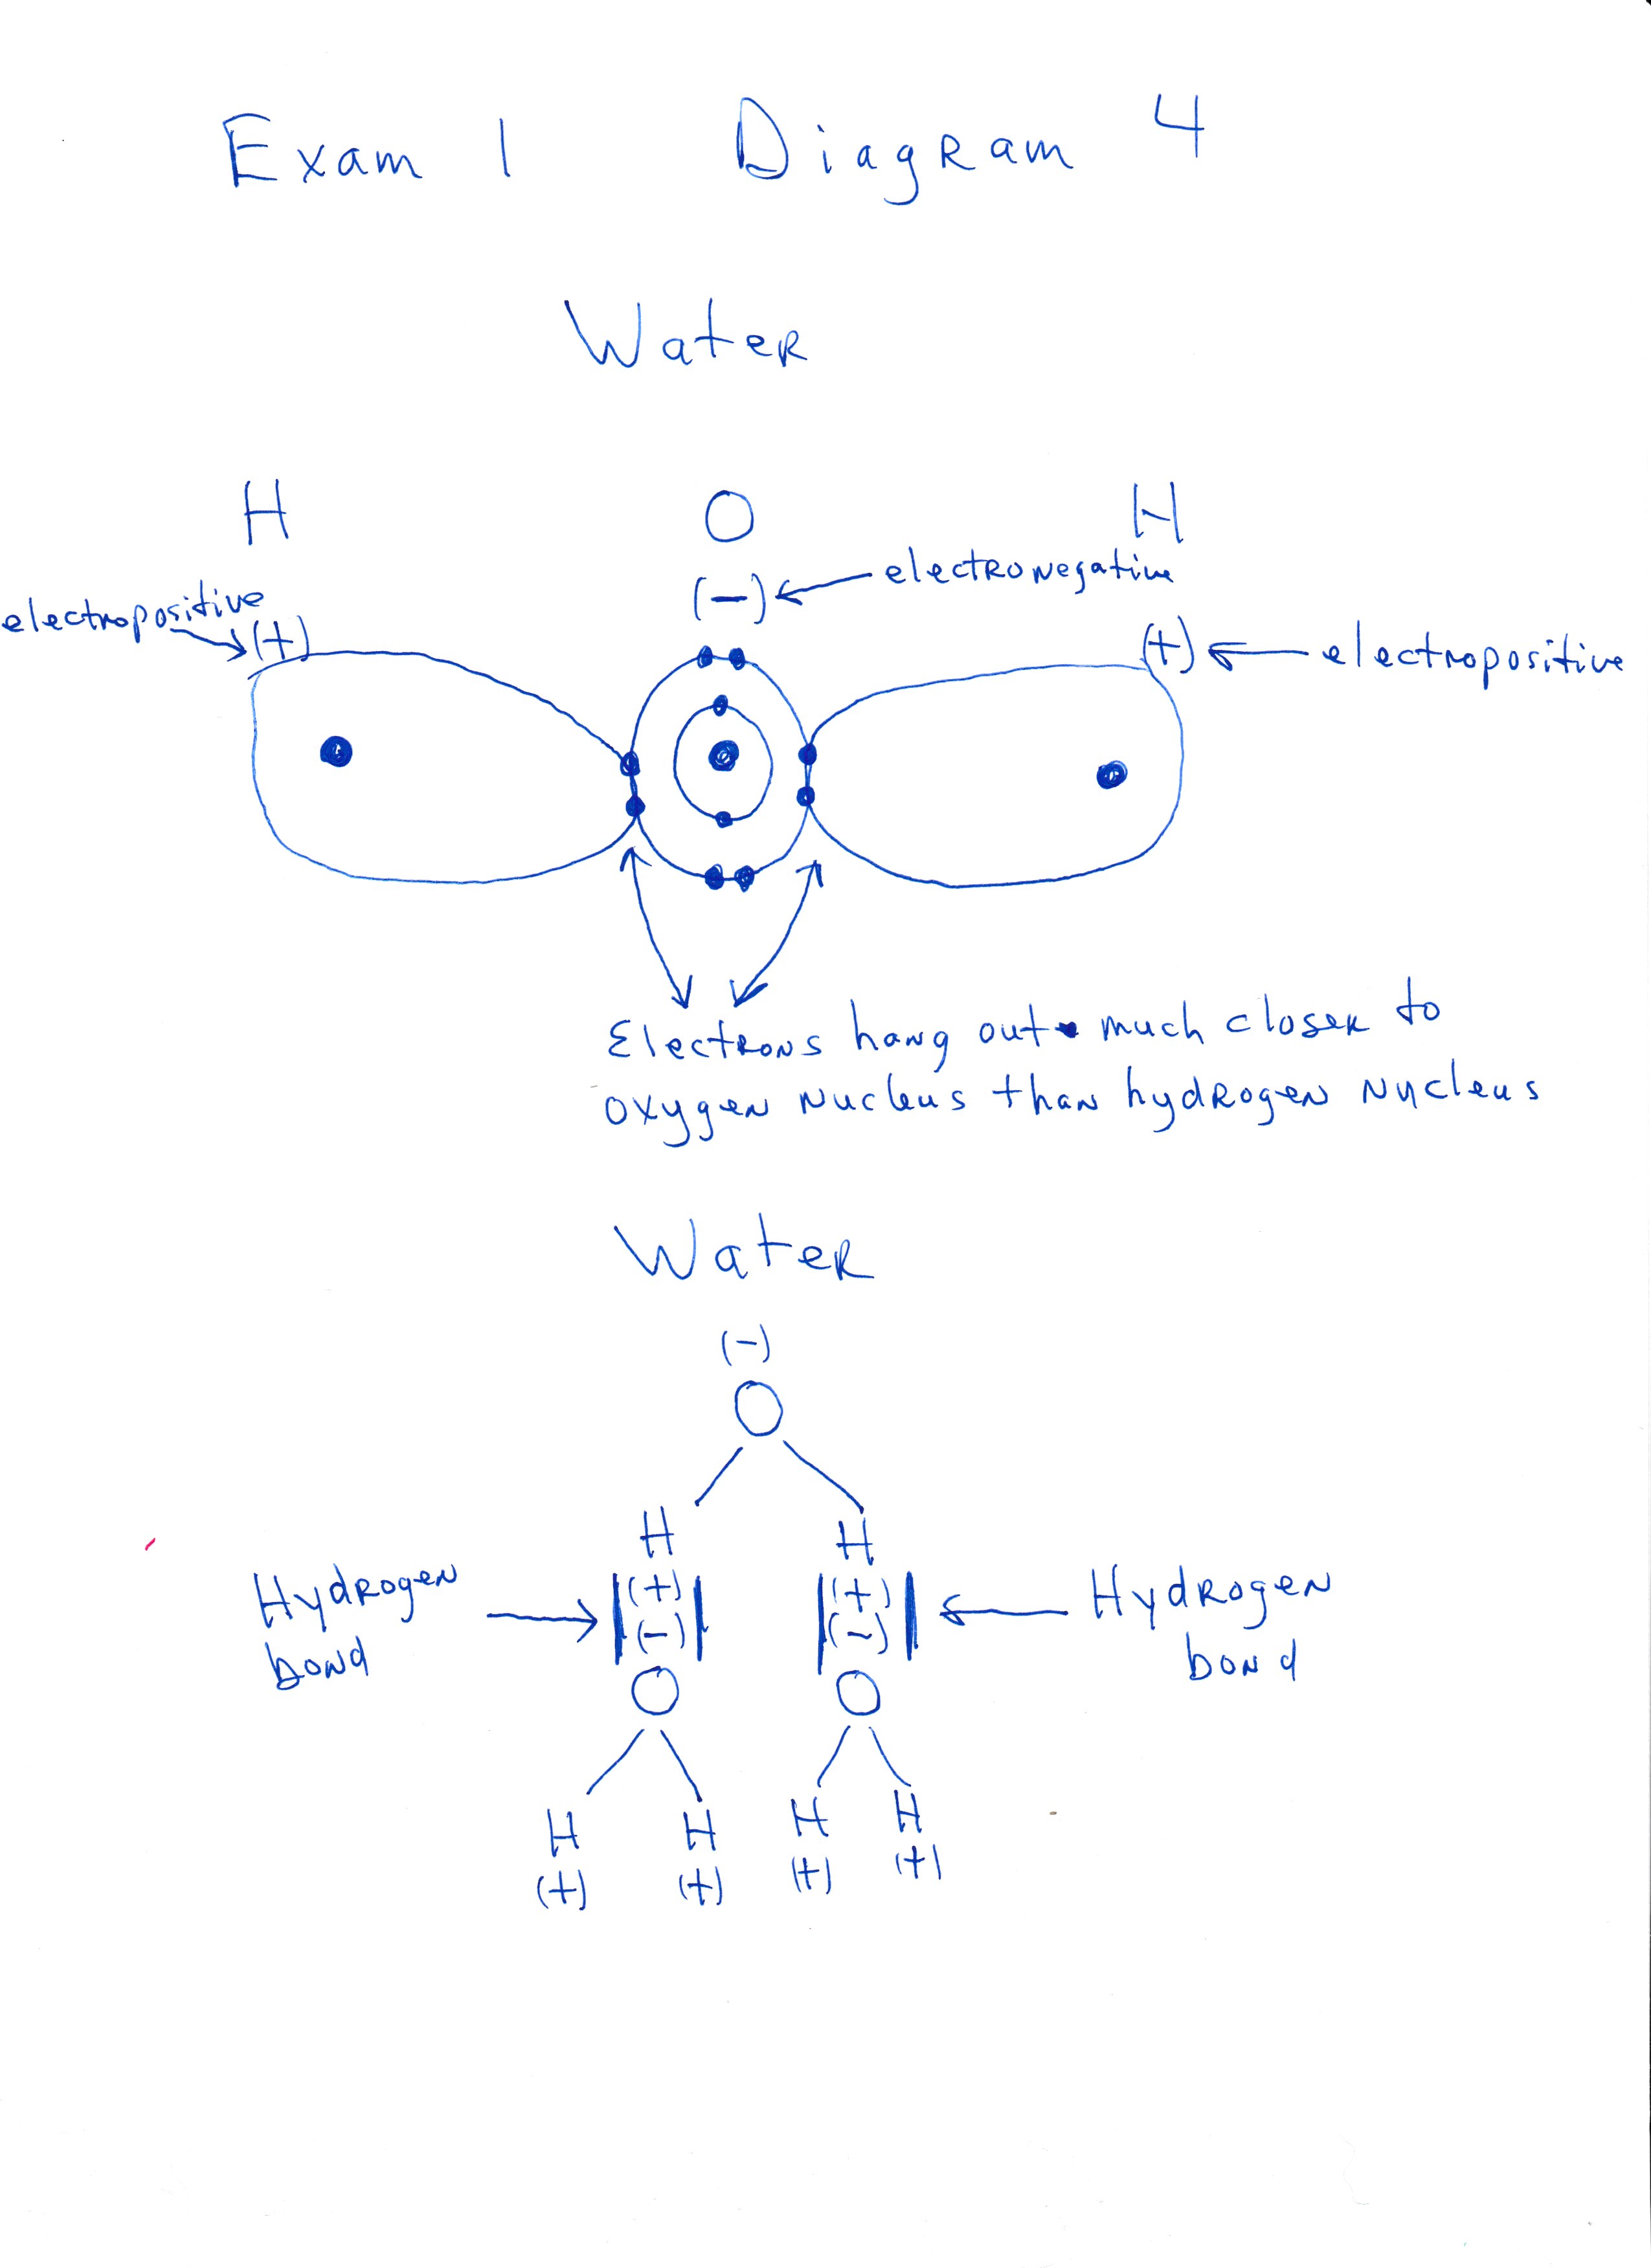 Exam 1 Diagram 4
Water
H O H
(-) ← electronegative
electropositive → (+)
(+) ← electropositive
Electrons hang out much closer to
oxygen nucleus than hydrogen nucleus
Water
(-)
O
H H
(+) (+)
Hydrogen bond → (-) (-) ← Hydrogen bond
O O
H H H H
(+) (+) (+) (+)